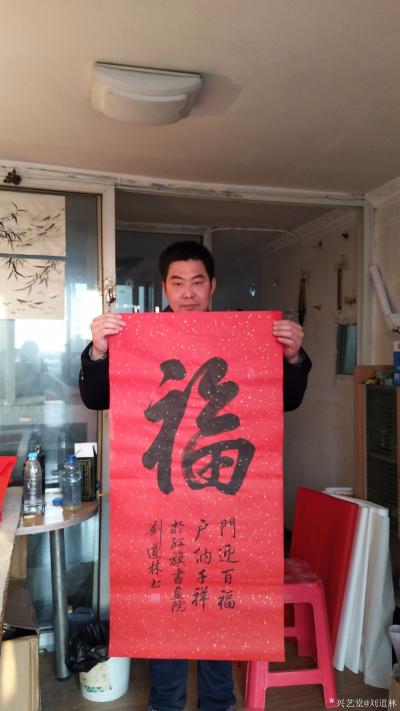 福
門迎百福
户纳千祥
於红旗書画院
劉道林书
兴艺堂@刘道林